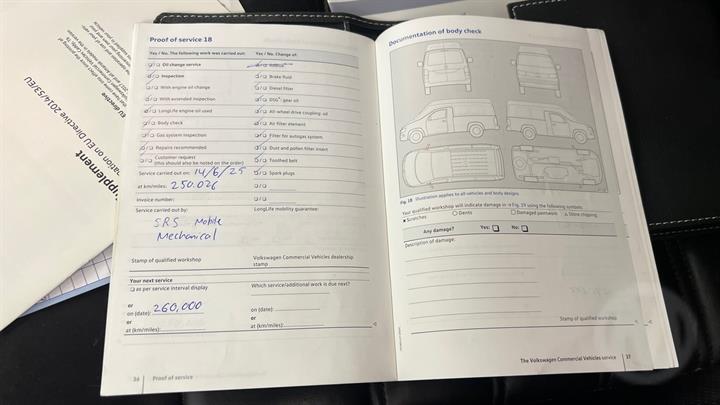 Proof of service 18
Yes / No. The following work was carried out:
Oil change service
Inspection
With engine oil change
With extended inspection
LongLife engine oil used
Body check
Gas system inspection
Repairs recommended
Customer request
(this should also be noted on the order)
Service carried out on: 14/6/25
at km/miles: 250.026
Invoice number:
Service carried out by:
SRS Mobile
Mechanical
Yes / No. Change of:
Brake fluid
Diesel filter
DSG® gear oil
All-wheel drive coupling oil
Air filter element
Filter for autogas system
Dust and pollen filter insert
Toothed belt
Spark plugs
LongLife mobility guarantee:
Stamp of qualified workshop
Volkswagen Commercial Vehicles dealership
stamp
Your next service
as per service interval display
or
on (date): 260,000
or
at (km/miles):
Which service/additional work is due next?
on (date):
or
at (km/miles):
36 Proof of service
Documentation of body check
Fig. 18 Illustration applies to all vehicles and body designs
Your qualified workshop will indicate damage in Fig. 19 using the following symbols:
Scratches
Dents
Damaged paintwork
Stone chipping
Any damage? Yes: No:
Description of damage:
Stamp of qualified workshop
The Volkswagen Commercial Vehicles service 37
EU directive
mation on EU Directive 2014/53/EU